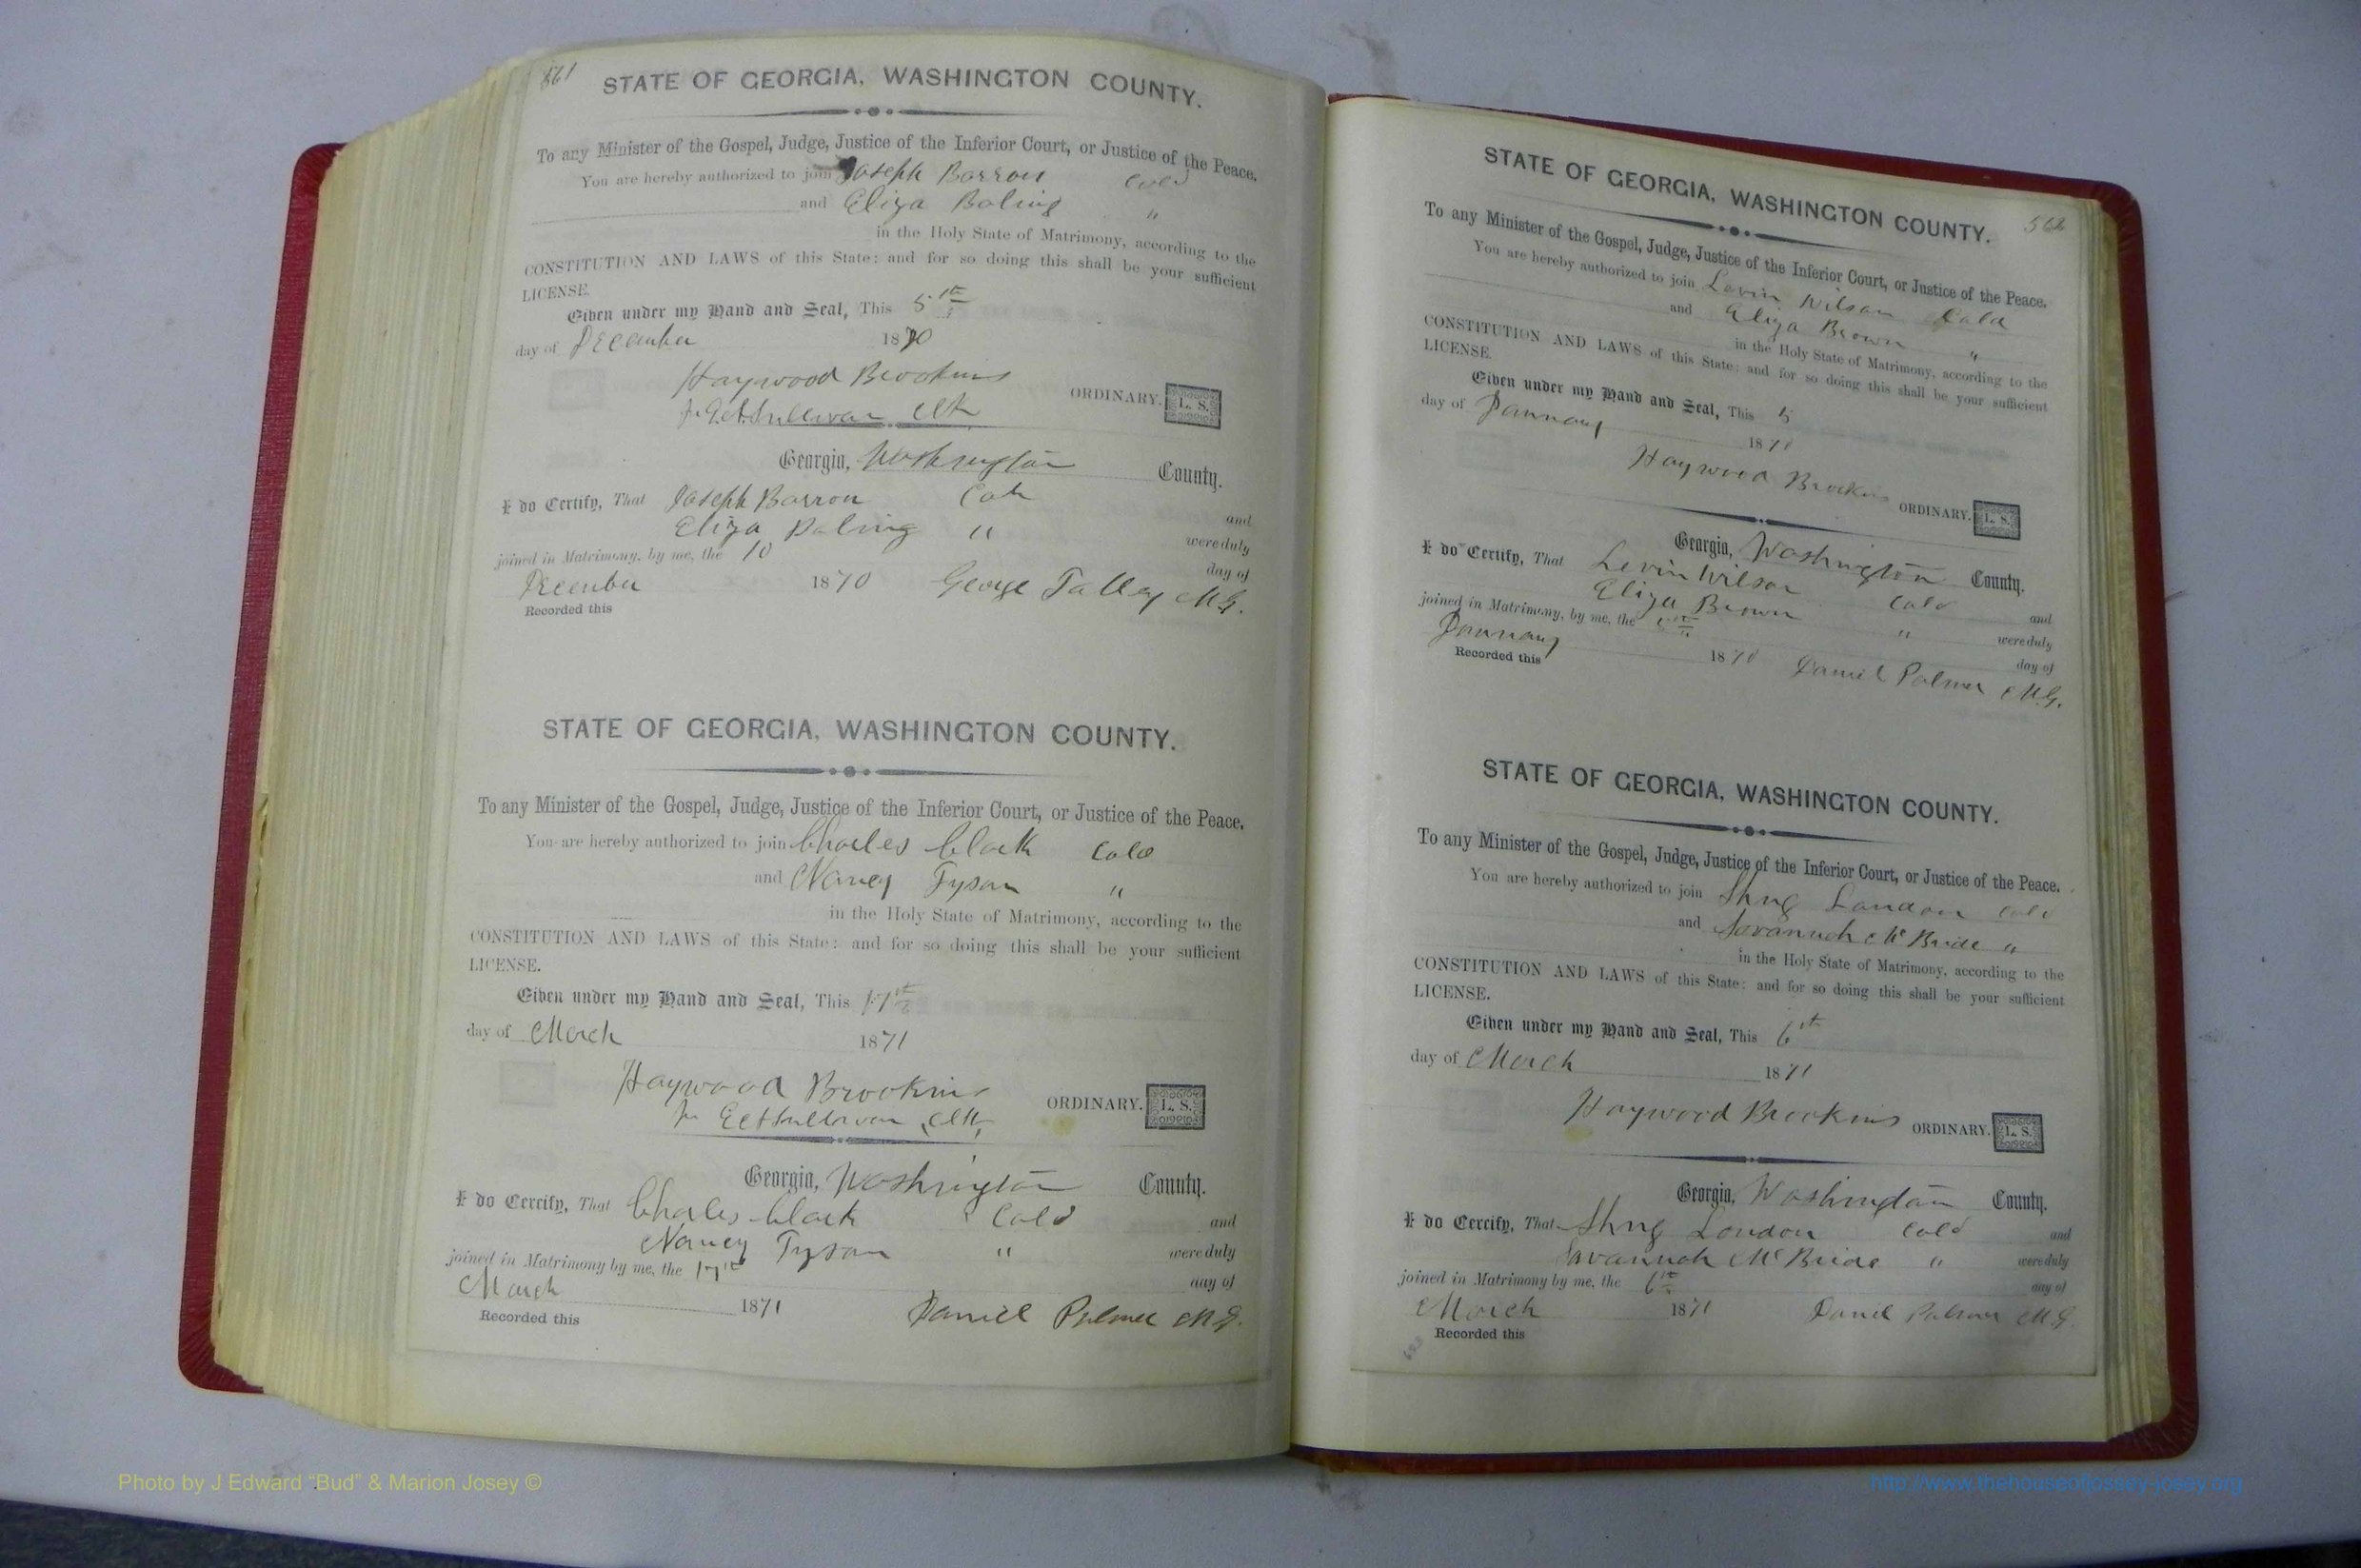 561
STATE OF GEORGIA, WASHINGTON COUNTY.
To any Minister of the Gospel, Judge, Justice of the Inferior Court, or Justice of the Peace.
You are hereby authorized to join Joseph Barron Cold
and Eliza Boling "
in the Holy State of Matrimony, according to the
CONSTITUTION AND LAWS of this State: and for so doing this shall be your sufficient
LICENSE.
Given under my Hand and Seal, This 5th
day of December 1870
Haywood Brookins
ORDINARY. L. S.
Sullivan Clk
Georgia, Washington County.
I do Certify, That Joseph Barron Cold and
Eliza Boling " were duly
joined in Matrimony, by me, the 10 day of
December 1870 George Talley M.G.
Recorded this
STATE OF GEORGIA, WASHINGTON COUNTY.
To any Minister of the Gospel, Judge, Justice of the Inferior Court, or Justice of the Peace.
You are hereby authorized to join Charles Clark Cold
and Nancy Tyson "
in the Holy State of Matrimony, according to the
CONSTITUTION AND LAWS of this State: and for so doing this shall be your sufficient
LICENSE.
Given under my Hand and Seal, This 17th
day of March 1871
Haywood Brookins
ORDINARY. L. S.
Sullivan Clk
Georgia, Washington County.
I do Cercify, That Charles Clark Cold and
Nancy Tyson " were duly
joined in Matrimony by me, the 17th day of
March 1871 Daniel Palmer M.G.
Recorded this
562
STATE OF GEORGIA, WASHINGTON COUNTY.
To any Minister of the Gospel, Judge, Justice of the Inferior Court, or Justice of the Peace.
You are hereby authorized to join Levin Wilson Cold
and Eliza Brown "
in the Holy State of Matrimony, according to the
CONSTITUTION AND LAWS of this State: and for so doing this shall be your sufficient
LICENSE.
Given under my Hand and Seal, This 5
day of January 1871
Haywood Brookins
ORDINARY. L. S.
Georgia, Washington County.
I do Certify, That Levin Wilson Cold and
Eliza Brown " were duly
joined in Matrimony, by me, the 5th day of
January 1871 Daniel Palmer M.G.
Recorded this
STATE OF GEORGIA, WASHINGTON COUNTY.
To any Minister of the Gospel, Judge, Justice of the Inferior Court, or Justice of the Peace.
You are hereby authorized to join London Cold
and Savannah McBride "
in the Holy State of Matrimony, according to the
CONSTITUTION AND LAWS of this State: and for so doing this shall be your sufficient
LICENSE.
Given under my Hand and Seal, This 6th
day of March 1871
Haywood Brookins
ORDINARY. L. S.
Georgia, Washington County.
I do Cercify, That London Cold and
Savannah McBride " were duly
joined in Matrimony by me, the 6th day of
March 1871 Daniel Palmer M.G.
Recorded this
Photo by J Edward "Bud" & Marion Josey ©
http://www.thehouseofjossey-josey.org